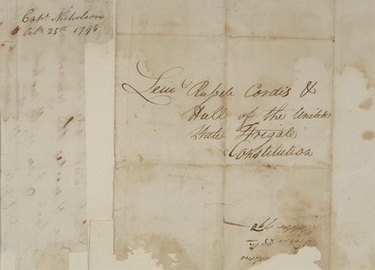 Capt Nicholson
Oct. 25th 1798
Leiut Russell Cordis &
Hull of the United
State Frigate
Constitution